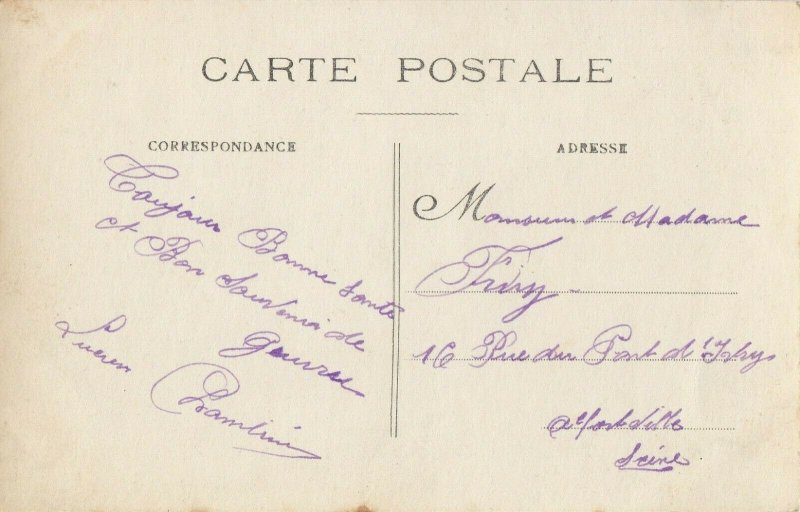 CARTE POSTALE
CORRESPONDANCE
Toujours Bonne Santé
et Bon Souvenir de
Lucien
ADRESSE
Monsieur et Madame
16 Rue du Pont d'Ivry
Alfortville
Seine